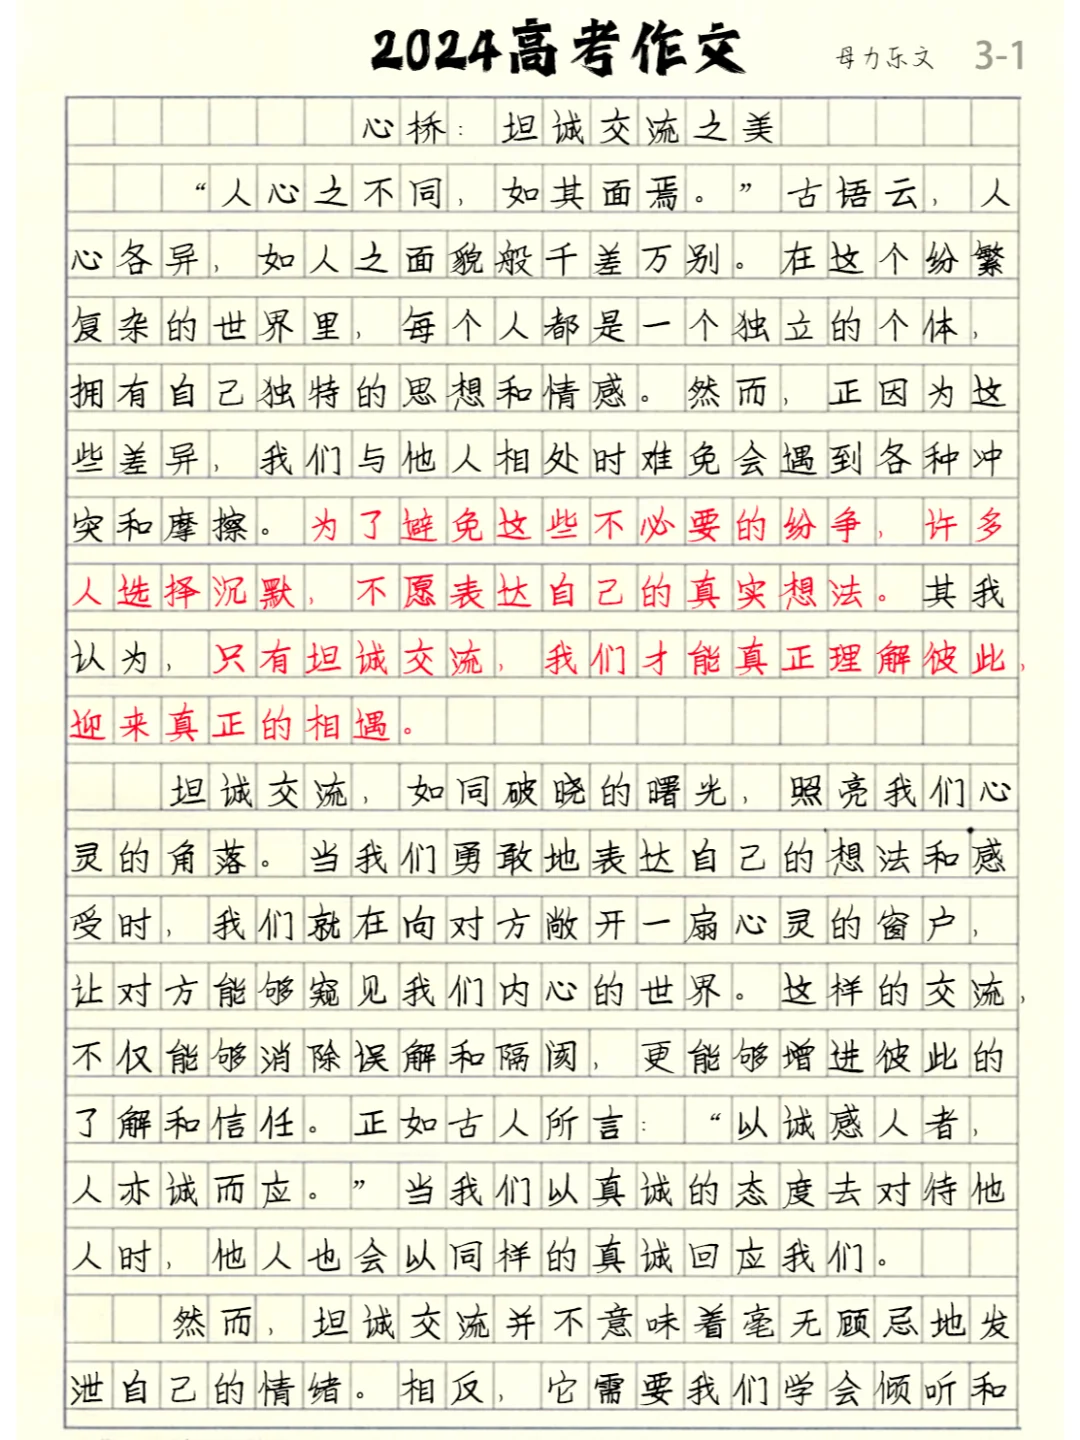 2024高考作文
母力乐文 3-1
心桥：坦诚交流之美
“人心之不同，如其面焉。”古语云，人
心各异，如人之面貌般千差万别。在这个纷繁
复杂的世界里，每个人都是一个独立的个体，
拥有自己独特的思想和情感。然而，正因为这
些差异，我们与他人相处时难免会遇到各种冲
突和摩擦。为了避免这些不必要的纷争，许多
人选择沉默，不愿表达自己的真实想法。其我
认为，只有坦诚交流，我们才能真正理解彼此，
迎来真正的相遇。
坦诚交流，如同破晓的曙光，照亮我们心
灵的角落。当我们勇敢地表达自己的想法和感
受时，我们就在向对方敞开一扇心灵的窗户，
让对方能够窥见我们内心的世界。这样的交流，
不仅能够消除误解和隔阂，更能够增进彼此的
了解和信任。正如古人所言：“以诚感人者，
人亦诚而应。”当我们以真诚的态度去对待他
人时，他人也会以同样的真诚回应我们。
然而，坦诚交流并不意味着毫无顾忌地发
泄自己的情绪。相反，它需要我们学会倾听和